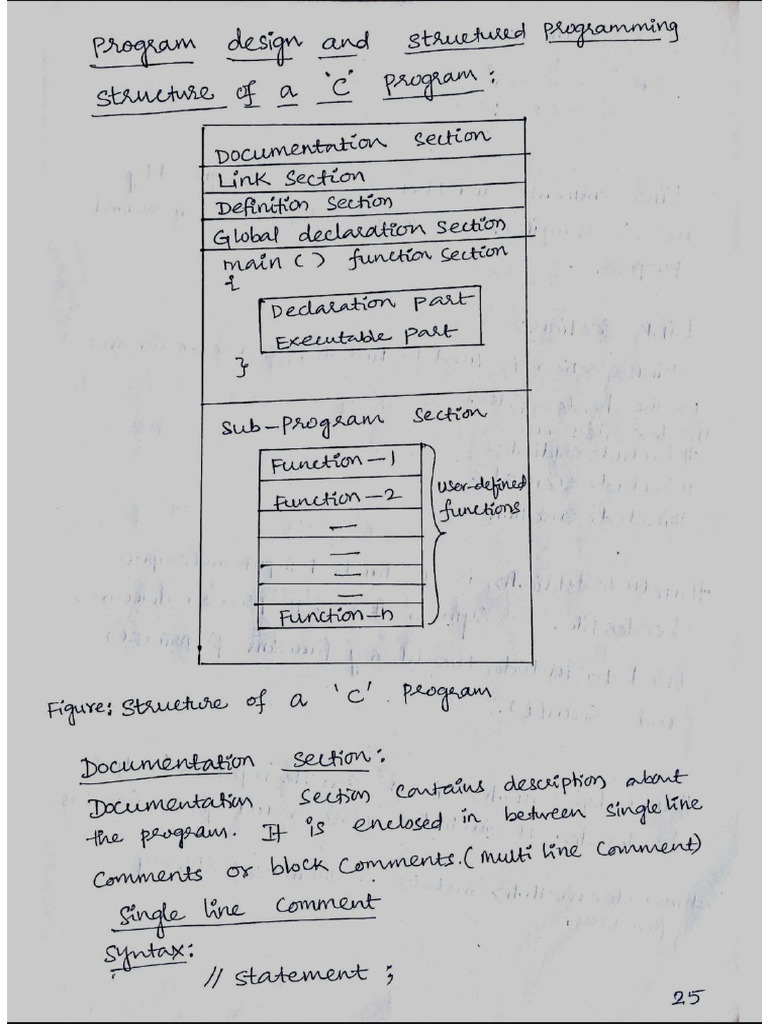 Program design and structured programming
structure of a 'C' program:
Documentation section
Link section
Definition section
Global declaration section
main ( ) function section
{
Declaration part
Executable part
}
Sub-Program section
Function-1
Function-2
—
—
—
—
Function-n
user-defined
functions
Figure: structure of a 'C' program
Documentation section:
Documentation section contains description about
the program. It is enclosed in between single line
comments or block comments. (multi line comment)
single line comment
syntax:
// statement ;
25